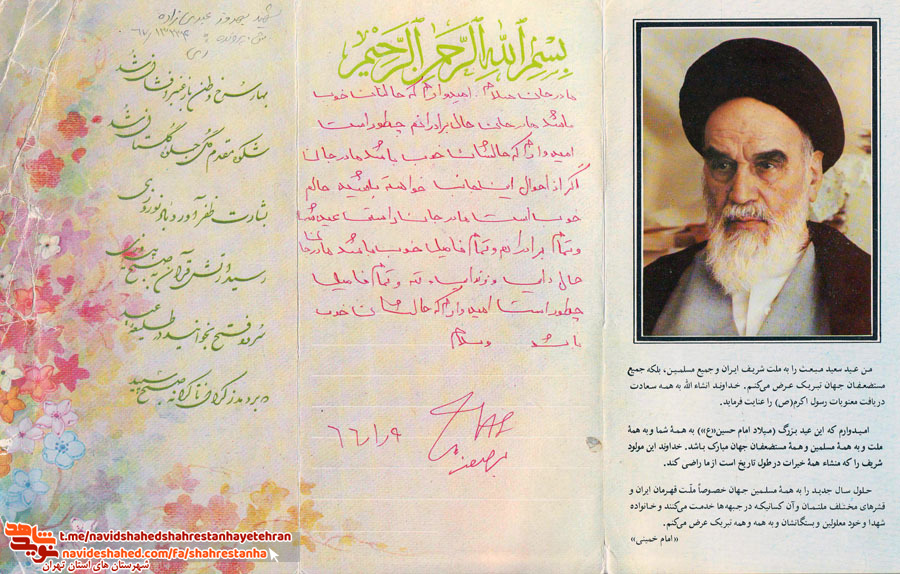 من عید سعید مبعث را به ملت شریف ایران و جمیع مسلمین، بلکه جمیع
مستضعفان جهان تبریک عرض می‌کنم. خداوند انشاء الله به همه سعادت
دریافت معنویات رسول اکرم(ص) را عنایت فرماید.
امیدوارم که این عید بزرگ (میلاد امام حسین«ع») به همهٔ شما و به همهٔ
ملت و به همهٔ مسلمین و همهٔ مستضعفان جهان مبارک باشد. خداوند این مولود
شریف را که منشاء همهٔ خیرات در طول تاریخ است از ما راضی کند.
حلول سال جدید را به همهٔ مسلمین جهان خصوصاً ملّت قهرمان ایران و
قشرهای مختلف ملتمان و آن کسانیکه در جبهه‌ها خدمت می‌کنند و خانواده
شهدا و خود معلولین و بستگانشان و به همه و همه تبریک عرض می‌کنم.
«امام خمینی»
بسم الله الرحمن الرحیم
مادر جان سلام. امیدوارم که حالتان خوب
باشد مادر جان حال برادرانم چطور است
امیدوارم که حالشان خوب باشد مادر جان
اگر از احوال اینجانب خواسته باشید حالم
خوب است مادر جان
و تمام برادرانم و تمام فامیل خوب باشد مادر جان
حال دایی و و تمام فامیل
چطور است امیدوارم که حالشان خوب
باشد وسلام
۶۶/۱/۹
شهید بهروز عبدی‌زاده
بهار سرخ وطن باز عنبر افشان شد
شکوه مقدم گل جلوهٔ گلستان شد
بشارت ظفر آورد باد نوروزی
رسید ارتش قرآن به صبح پیروزی
سرود فتح بخوانید در طلیعهٔ عید
دمید بدر کران تا کرانه صبح سپید
شاهد
نوید
t.me/navidshahedshahrestanhayetehran
navideshahed.com/fa/shahrestanha
شهرستان های استان تهران